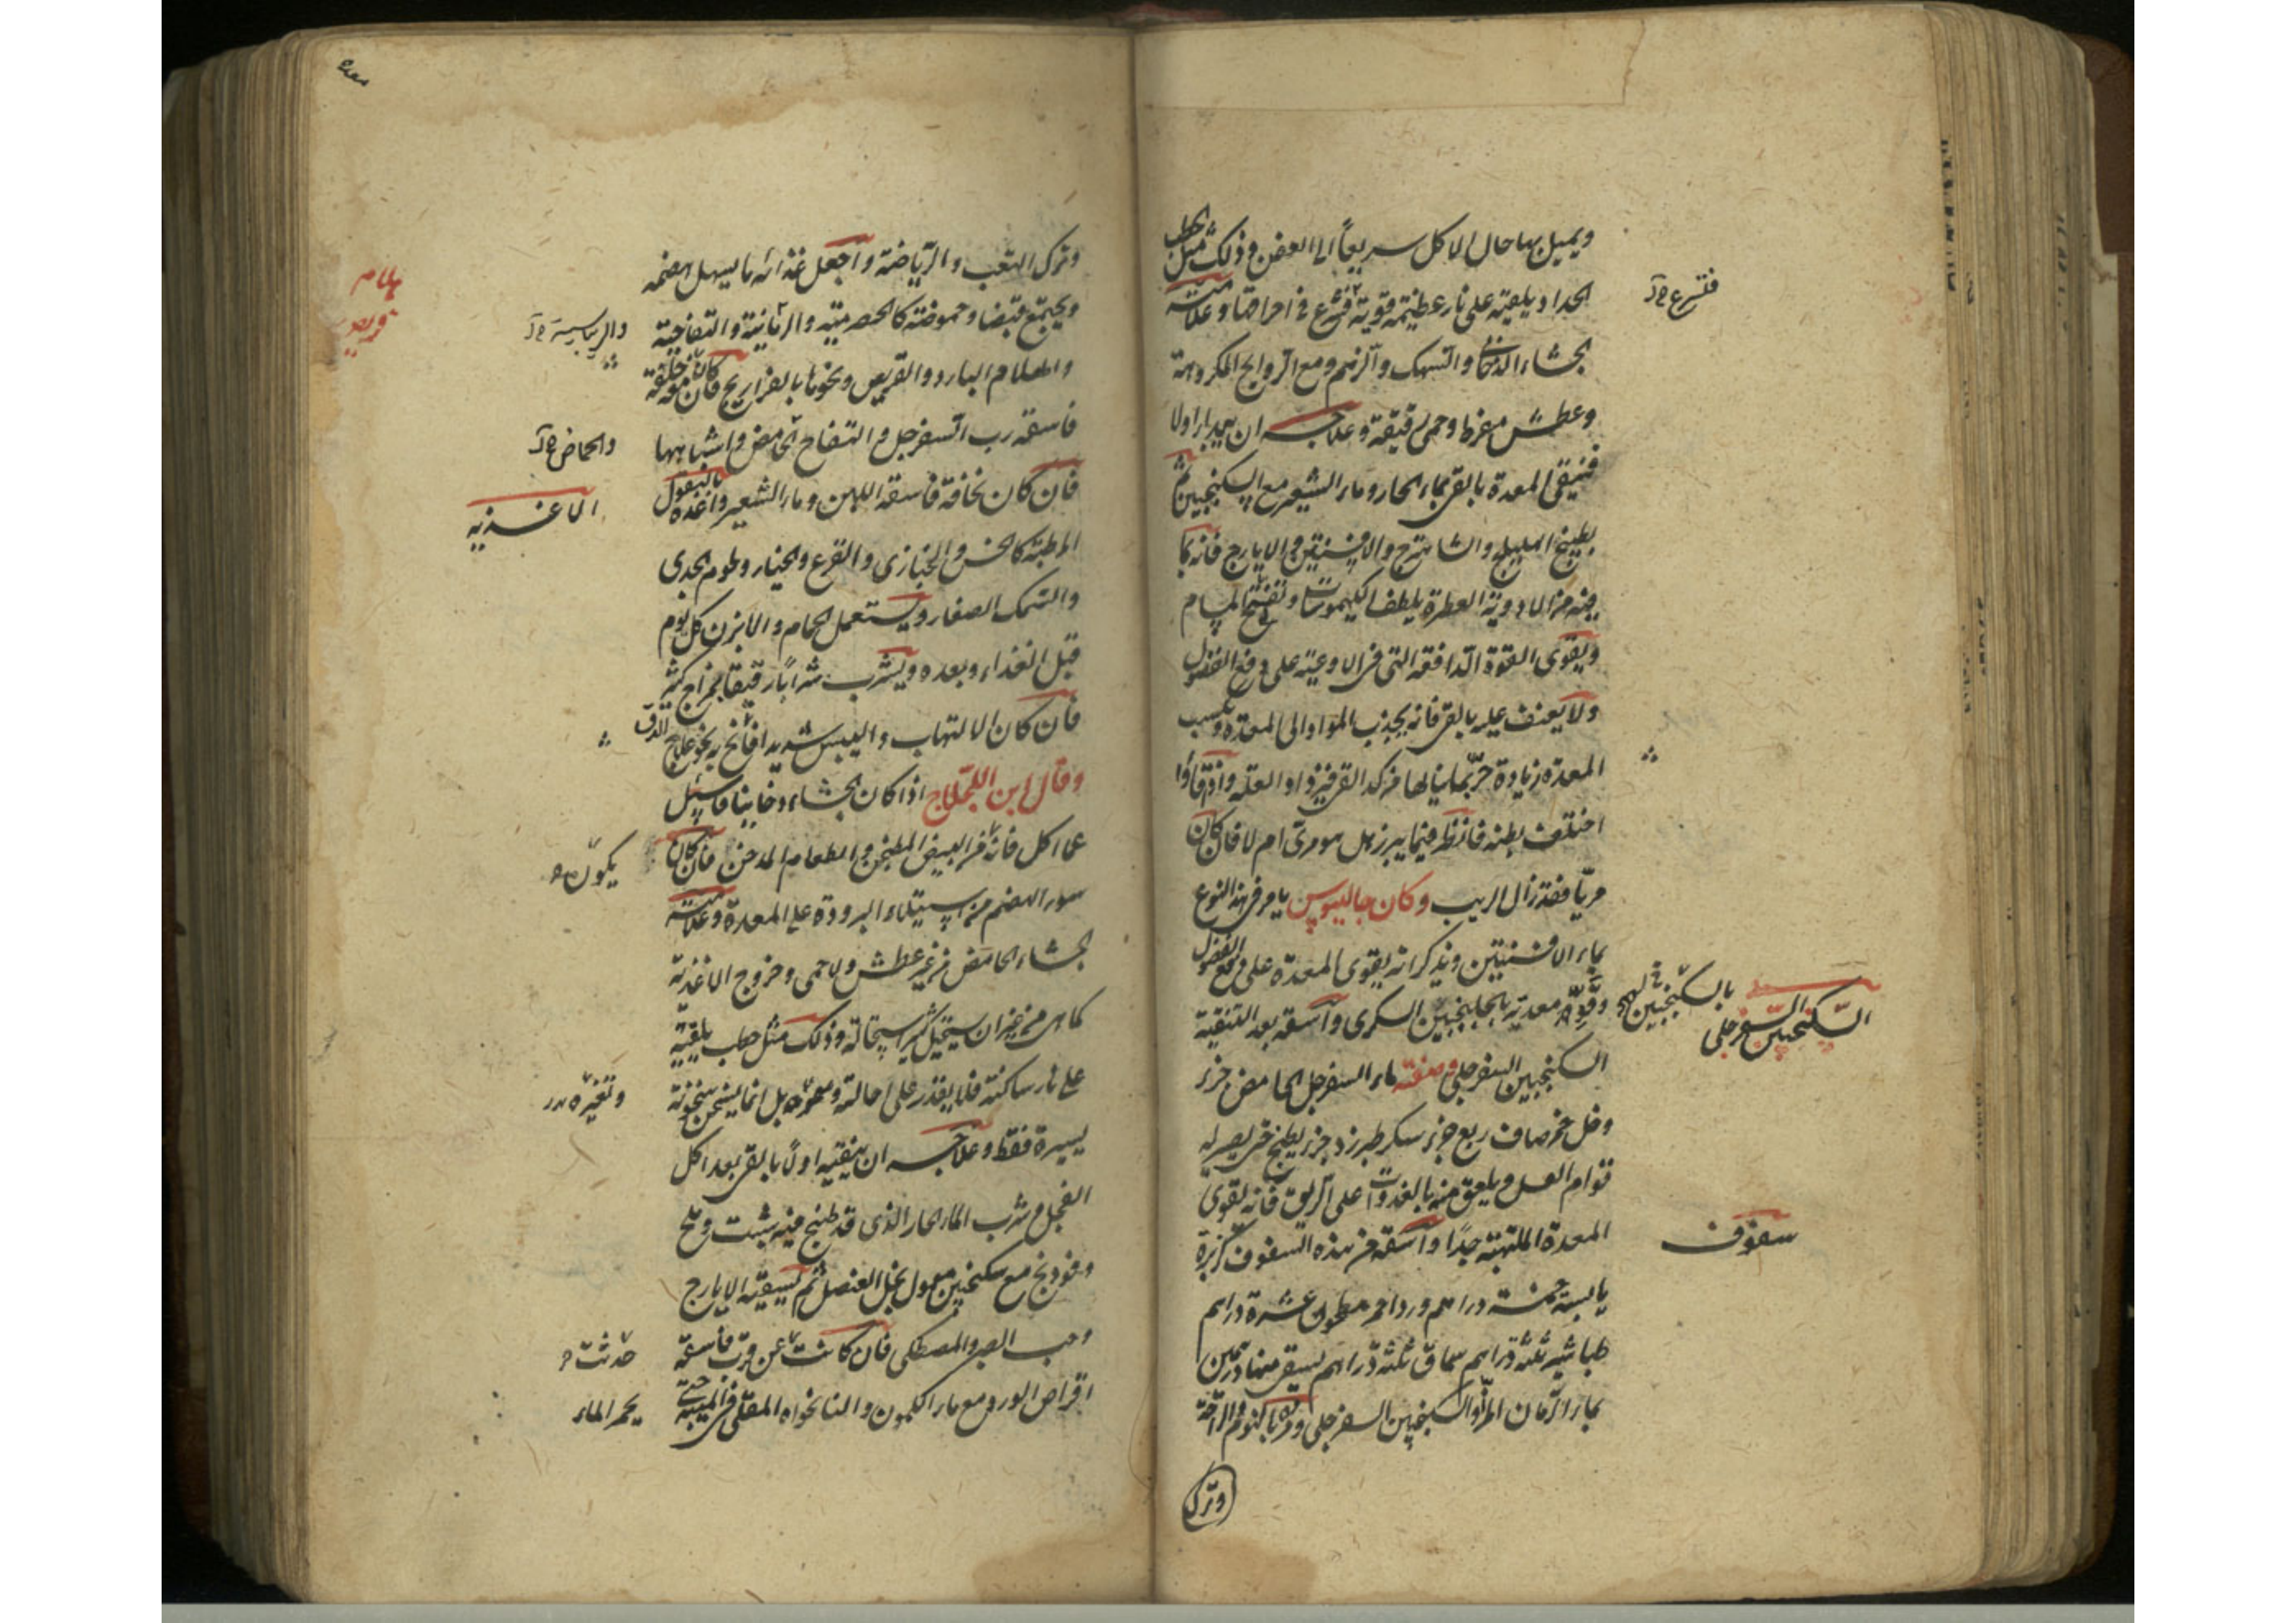 ويميل بها حال الاكل سريعاً الى العفن وذلك مثل
الحداد يلقيه على نار عظيمة قوية فتشرع في احراقها وعلامته
الجشاء الدخانى والسهك والزنخ ومع الروايح المكروهة
وعطش مفرط وحمى رقيقة وعلاجه ان يبدا اولا
فينقى المعدة بالقئ بماء الحار وماء الشعير مع السكنجبين ثم
بطبيخ الهليلج والشاهترج والافسنتين والايارج فانه بما
فيه من الادوية العطرة يلطف الكيموسات ويفتح المسام
ويقوى القوة الدافعة التى فى الاوعية على دفع الفضول
ولا يعنف عليه بالقئ فانه يجذب المواد الى المعدة ويكسب
المعدة زيادة حر بما ينالها من كد القئ فيزداد العلة واذا قاؤا
اختلف بطنه فانظر فيما يبرز هل هو مرى ام لا فان كان
مريا فقد زال الريب وكان جالينوس يامر فى هذا النوع
بماء الافسنتين ويذكر انه يقوى المعدة على دفع الفضول
وقو معدته بالجلنجبين السكرى واسقه بعد التنقية
السكنجبين السفرجلى وصفته ماء السفرجل الحامض جزء
وخل خمر صاف ربع جزء سكر طبرزد جزء يطبخ حتى يصير له
قوام العسل ويلعق منه بالغدوات على الريق فانه يقوى
المعدة الملتهبة جدًا واسقه من هذه السفوف كزبرة
يابسة خمسة دراهم ورد احمر مطحون عشرة دراهم
طباشير ثلثة دراهم سماق ثلثة دراهم يسقى منها درهمين
بماء الرمان المز والسكنجبين السفرجلى ومره بالنوم والراحة
وترك
فتسرع
بالسكنجبين
السكنجبين السفرجلى
سفوف
وترك التعب والرياضة واجعل غذائه ما يسهل هضمه
ويجمع قبضا وحموضة كالحصرمية والرمانية والتفاحية
والهلام البارد والقريص ونحوها بالفراريج فان كان معه خلفة
فاسقه رب السفرجل والتفاح الحامض واشباهها
فان كان نحافة فاسقه اللبن وماء الشعير واغذه بالبقول
الرطبة كالخس والخبازى والقرع والخيار ولحوم الجدى
والسمك الصغار ويستعمل الحمام والابزن كل يوم
قبل الغذاء وبعده ويشرب شرابًا رقيقا بمزاج كثير
فان كان الالتهاب واليبس شديدا فانح به نحو علاج الدق
وقال ابن اللجلاج اذا كان الجشاء دخانيا فاسئل
عما اكل فانه من البيض المطجن والطعام المدخن فان كان
سوء الهضم من استيلاء البرودة على المعدة وعلامته
الجشاء الحامض من غير عطش ولا حمى وخروج الاغذية
كما هى من غير ان يستحيل كثير استحالة وذلك مثل حطب يلقيه
على نار ساكنة فلا يقدر على احالته بل انما يسخن سخونة
يسيرة فقط وعلاجه ان ينقيه اولًا بالقئ بعد اكل
الفجل وشرب الماء الحار الذى قد طبخ فيه شبت وملح
وفودنج مع سكنجبين معمول بخل العنصل ثم يسقيه الايارج
وحب الصبر والمصطكى فان كانت عن قرب فاسقه
اقراص الورد مع ماء الكمون والنانخواه المقلى فى الميبة
هلام
قريص
والريباسية
والحماض
الاغذيه
يكون
وتغيره
حدثت
بحر الماء